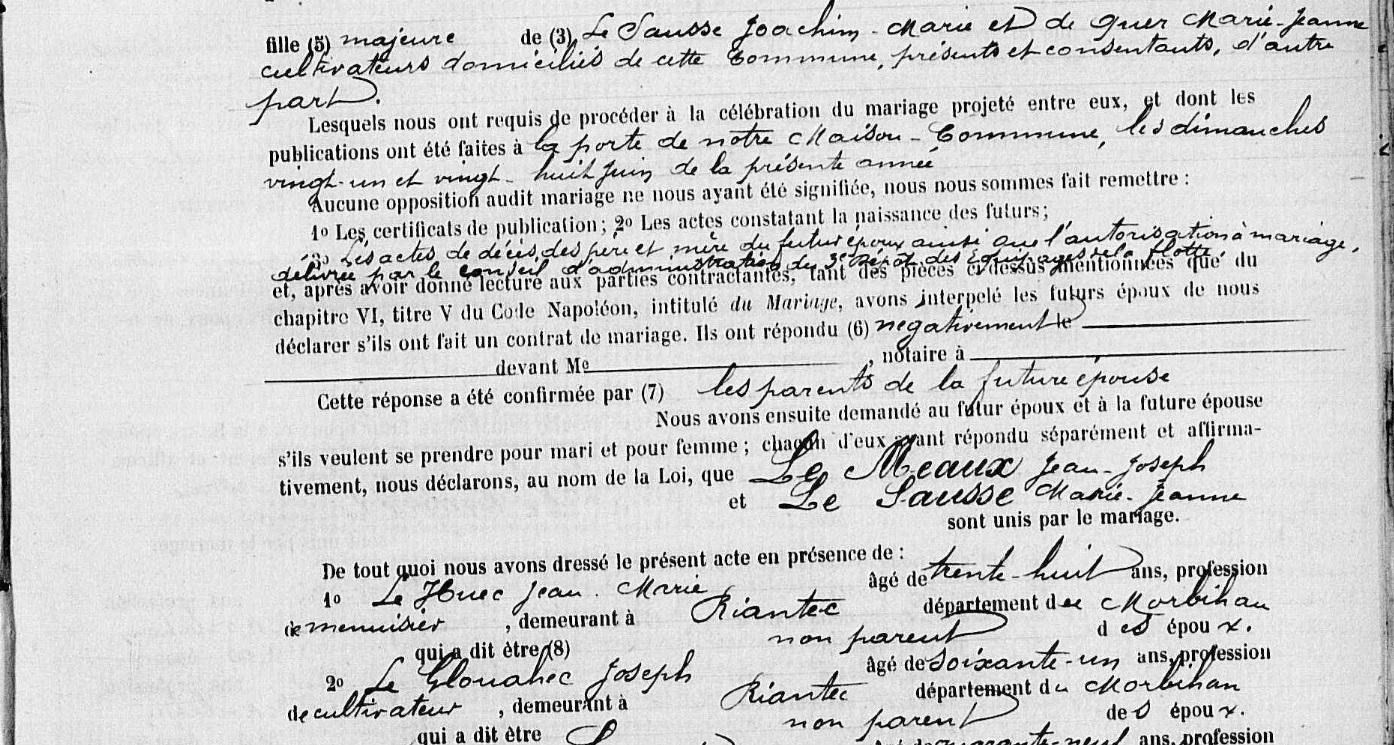 fille (5) majeure de (3) Le Sausse Joachim-Marie et de Quer Marie-Jeanne
cultivateurs domiciliés de cette Commune, présents et consentants, d'autre
part.
Lesquels nous ont requis de procéder à la célébration du mariage projeté entre eux, et dont les
publications ont été faites à la porte de notre Maison-Commune, les dimanches
vingt-un et vingt-huit Juin de la présente année
Aucune opposition audit mariage ne nous ayant été signifiée, nous nous sommes fait remettre :
1o Les certificats de publication ; 2o Les actes constatant la naissance des futurs ;
3o Les actes de décès des père et mère du futur époux ainsi que l'autorisation à mariage,
délivrée par le conseil d'administration du 3e Dépôt des Equipages de la flotte,
et, après avoir donné lecture aux parties contractantes, tant des pièces ci-dessus mentionnées que du
chapitre VI, titre V du Code Napoléon, intitulé du Mariage, avons interpelé les futurs époux de nous
déclarer s'ils ont fait un contrat de mariage. Ils ont répondu (6) négativement le
devant Me , notaire à
Cette réponse a été confirmée par (7) les parents de la future épouse
Nous avons ensuite demandé au futur époux et à la future épouse
s'ils veulent se prendre pour mari et pour femme ; chacun d'eux ayant répondu séparément et affirma-
tivement, nous déclarons, au nom de la Loi, que Le Meaux Jean-Joseph
et Le Sausse Marie-Jeanne
sont unis par le mariage.
De tout quoi nous avons dressé le présent acte en présence de :
1o Le Huec Jean Marie âgé de trente-huit ans, profession
de menuisier , demeurant à Riantec département du Morbihan
qui a dit être (8) non parent d es épou x.
2o Le Glouahec Joseph âgé de soixante-un ans, profession
de cultivateur , demeurant à Riantec département du Morbihan
qui a dit être non parent de s épou x.
quarante-neuf ans, profession